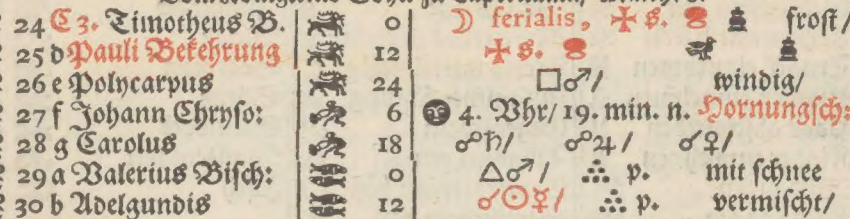 24 C 3. Timotheus B. 0 ☽ ferialis, frost/
25 d Pauli Bekehrung 12
26 e Polycarpus 24 □♂/ windig/
27 f Johann Chryso: 6 4. Vhr/ 19. min. n. Hornungsch:
28 g Carolus 18 ☍♄/ ☍♃/ ☌♀/
29 a Valerius Bisch: 0 △♂/ p. mit schnee
30 b Adelgundis 12 ☌☉☿/ p. vermischt/